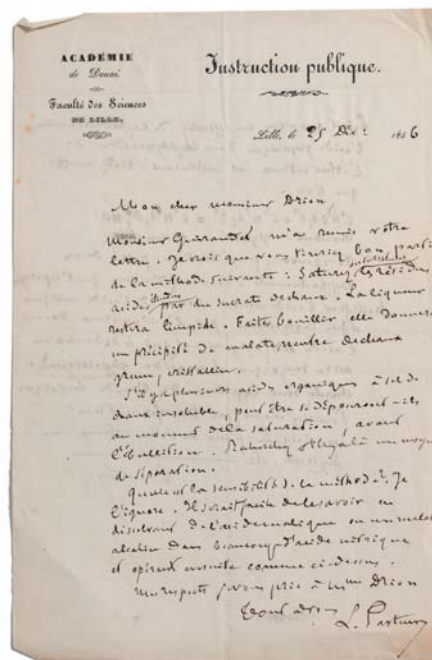 ACADÉMIE
de Douai.
Faculté des Sciences
DE LILLE.
Instruction publique.
Lille, le 25 Déc. 1856
Mon cher monsieur Drion,
Monsieur Guiraudet m'a remis votre
lettre. Je crois que vous tirerez bon parti
de la méthode suivante : Saturez les résidus
acides par du sucrate de chaux. La liqueur
restera limpide. Faites bouillir elle donnera
un précipité de malate neutre de chaux
grenu, cristallin.
S'il y a plusieurs acides organiques à sel de
chaux insoluble, peut être se déposeront-ils
au moment de la saturation, avant
l'ébullition. un moyen
de séparation.
Quelle est la sensibilité de la méthode? Je
l'ignore. Il serait facile de le savoir en
dissolvant de l'acide malique ou un malate
alcalin dans beaucoup d'acide nitrique
et opérant ensuite comme ci-dessus.
Mes respects je vous prie à Mme Drion
Tout à vous
L. Pasteur